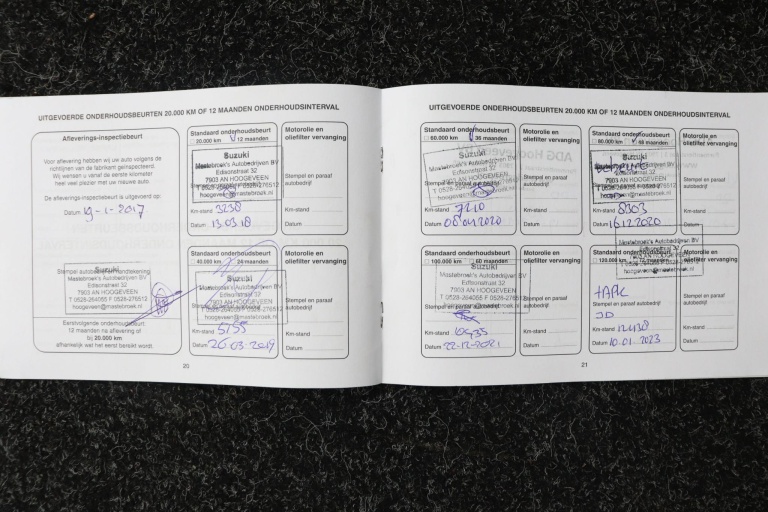 UITGEVOERDE ONDERHOUDSBEURTEN 20.000 KM OF 12 MAANDEN ONDERHOUDSINTERVAL
Afleverings-inspectiebeurt
Voor aflevering hebben wij uw auto volgens de
richtlijnen van de fabrikant geïnspecteerd.
Wij wensen u vanaf de eerste kilometer
heel veel plezier met uw nieuwe auto.
De afleverings-inspectie is uitgevoerd op:
Datum 19-1-2017
Suzuki
Mastebroek's Autobedrijven BV
Edisonstraat 32
7903 AN HOOGEVEEN
T 0528-264055 F 0528-276512
hoogeveen@mastebroek.nl
Eerstvolgende onderhoudsbeurt:
12 maanden na aflevering of
bij 20.000 km
afhankelijk wat het eerst bereikt wordt.
Standaard onderhoudsbeurt
20.000 km 12 maanden
Suzuki
Autobedrijven BV
Edisonstraat 32
7903 AN HOOGEVEEN
hoogeveen@mastebroek.nl
Km-stand 3238
Datum 13.03.18
Motorolie en
oliefilter vervanging
Stempel en paraaf
autobedrijf
Km-stand
Datum
Standaard onderhoudsbeurt
40.000 km 24 maanden
Suzuki
Mastebroek's Autobedrijven BV
Edisonstraat 32
7903 AN HOOGEVEEN
hoogeveen@mastebroek.nl
Km-stand 5155
Datum 26.03.2019
Motorolie en
oliefilter vervanging
Stempel en paraaf
autobedrijf
Km-stand
Datum
20
UITGEVOERDE ONDERHOUDSBEURTEN 20.000 KM OF 12 MAANDEN ONDERHOUDSINTERVAL
Standaard onderhoudsbeurt
60.000 km 36 maanden
Suzuki
Mastebroek's Autobedrijven BV
Edisonstraat 32
7903 AN HOOGEVEEN
T 0528-264055 F 0528-276512
hoogeveen@mastebroek.nl
Km-stand 7210
Datum 08.04.2020
Motorolie en
oliefilter vervanging
Stempel en paraaf
autobedrijf
Km-stand
Datum
Standaard onderhoudsbeurt
80.000 km 48 maanden
Suzuki
Edisonstraat 32
7903 AN HOOGEVEEN
hoogeveen@mastebroek.nl
Km-stand 8303
Datum 16.12.2020
Motorolie en
oliefilter vervanging
Stempel en paraaf
autobedrijf
Km-stand
Datum
Standaard onderhoudsbeurt
100.000 km 60 maanden
Suzuki
Mastebroek's Autobedrijven BV
Edisonstraat 32
7903 AN HOOGEVEEN
T 0528-264055 F 0528-276512
hoogeveen@mastebroek.nl
Datum 22-12-2021
Motorolie en
oliefilter vervanging
Stempel en paraaf
autobedrijf
Km-stand
Datum
Mastebroek's Autobedrijven BV
Edisonstraat 32
7903 AN HOOGEVEEN
hoogeveen@mastebroek.nl
Stempel en paraaf autobedrijf
JD
Km-stand 12438
Datum 10.01.2023
Km-stand
Datum
21